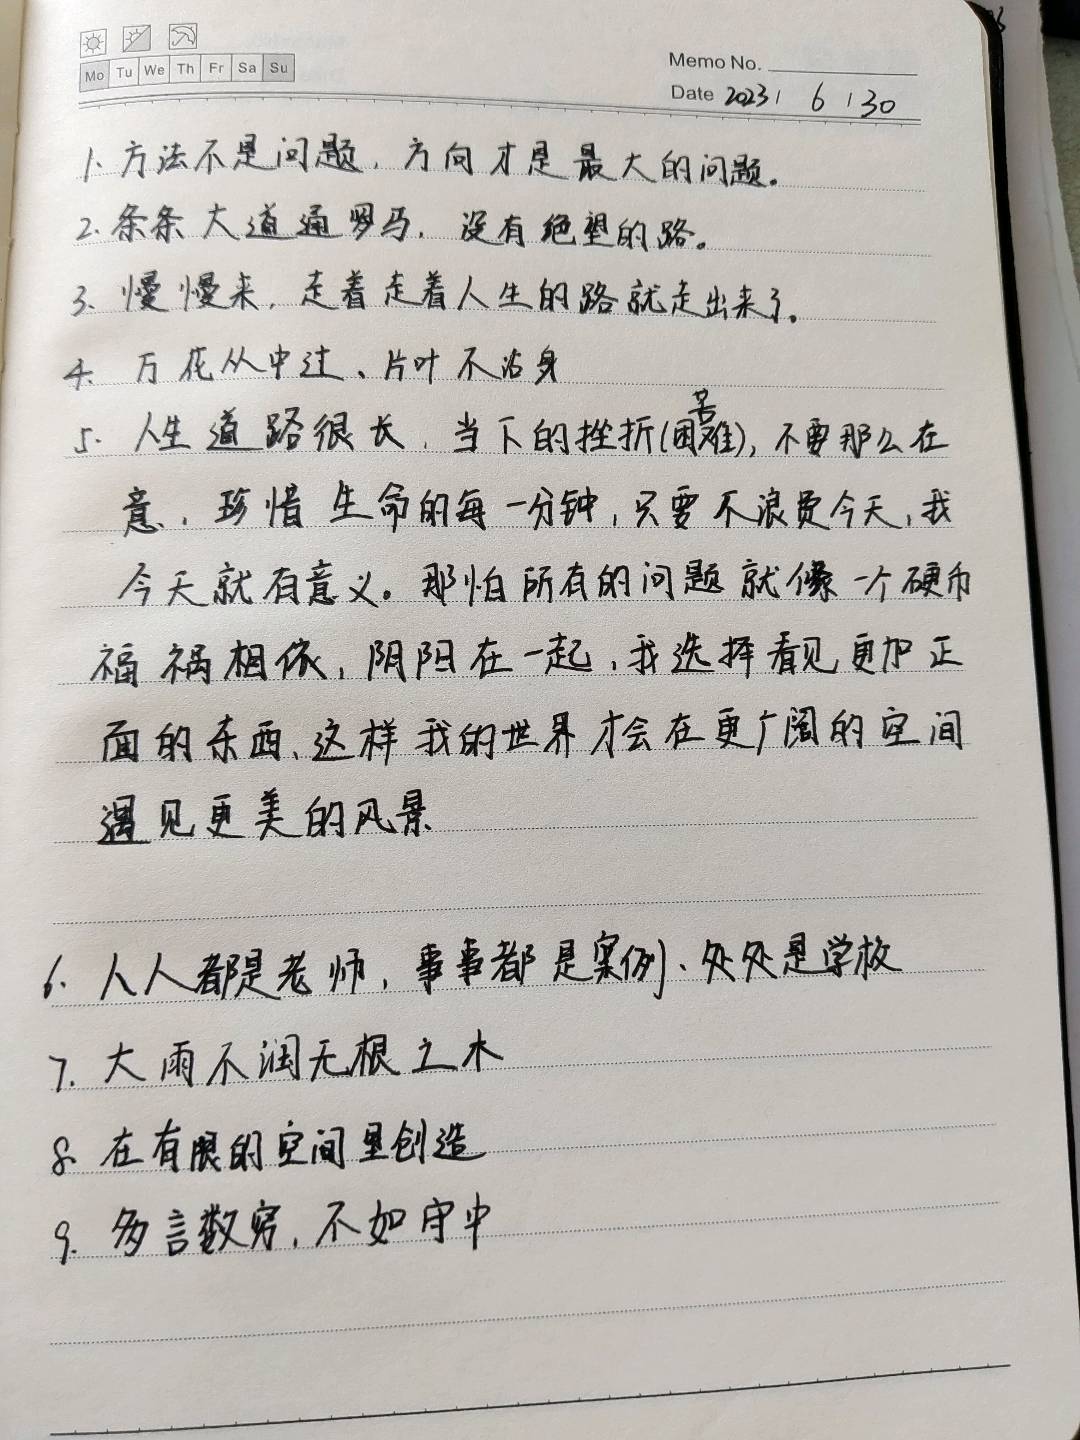 Mo Tu We Th Fr Sa Su
Memo No.
Date 2023 / 6 / 30
1. 方法不是问题，方向才是最大的问题。
2. 条条大道通罗马，没有绝望的路。
3. 慢慢来，走着走着人生的路就走出来了。
4. 万花从中过、片叶不沾身
5. 人生道路很长，当下的挫折(困苦难)，不要那么在
意，珍惜生命的每一分钟，只要不浪费今天，我
今天就有意义。那怕所有的问题就像一个硬币
福祸相依，阴阳在一起，我选择看见更加正
面的东西、这样我的世界才会在更广阔的空间
遇见更美的风景
6. 人人都是老师，事事都是案例、处处是学校
7. 大雨不润无根之木
8. 在有限的空间里创造
9. 多言数穷，不如守中